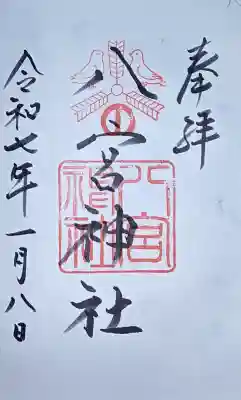 奉拝
八宮神社
八宮神社
令和七年一月八日